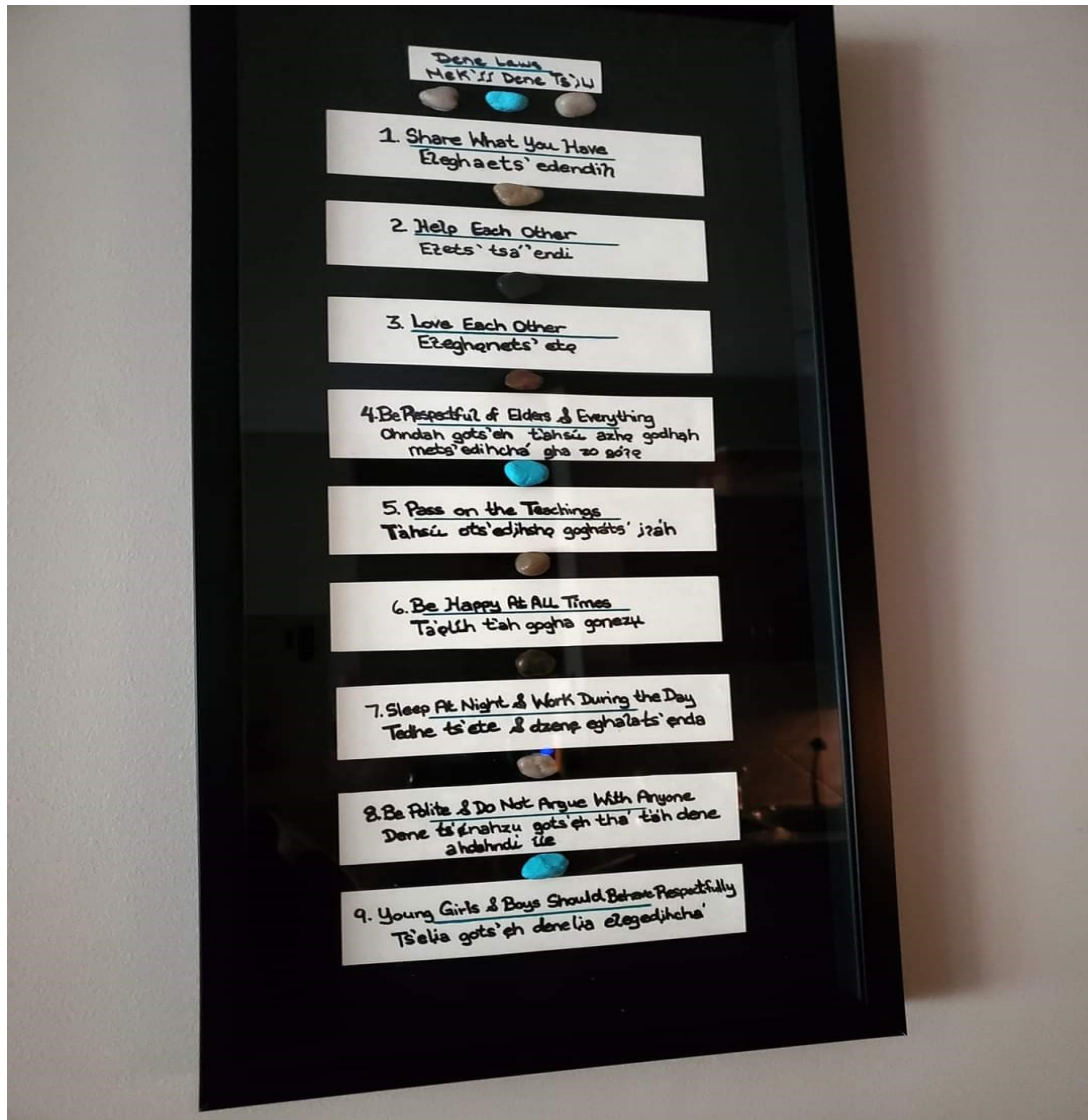 Dene Laws
Dene
1. Share What You Have
Ełeghaets' edendih
2. Help Each Other
Ełets' tsa'' endi
3. Love Each Other
Ełeghǫnets' etǫ
4. Be Respectful of Elders & Everything
Ohndah gots'eh azhǫ godhǫh
mets'edihchá gha zo
5. Pass on the Teachings
6. Be Happy At All Times
t'ah gogha gonezų
7. Sleep At Night & Work During the Day
Tedhe ts'ete & dzenę eghálats' ęnda
8. Be Polite & Do Not Argue With Anyone
Dene gots'ęh tha' t'ah dene
9. Young Girls & Boys Should Behave Respectfully
Ts'elia gots'ęh denelia ełegedįhcha'